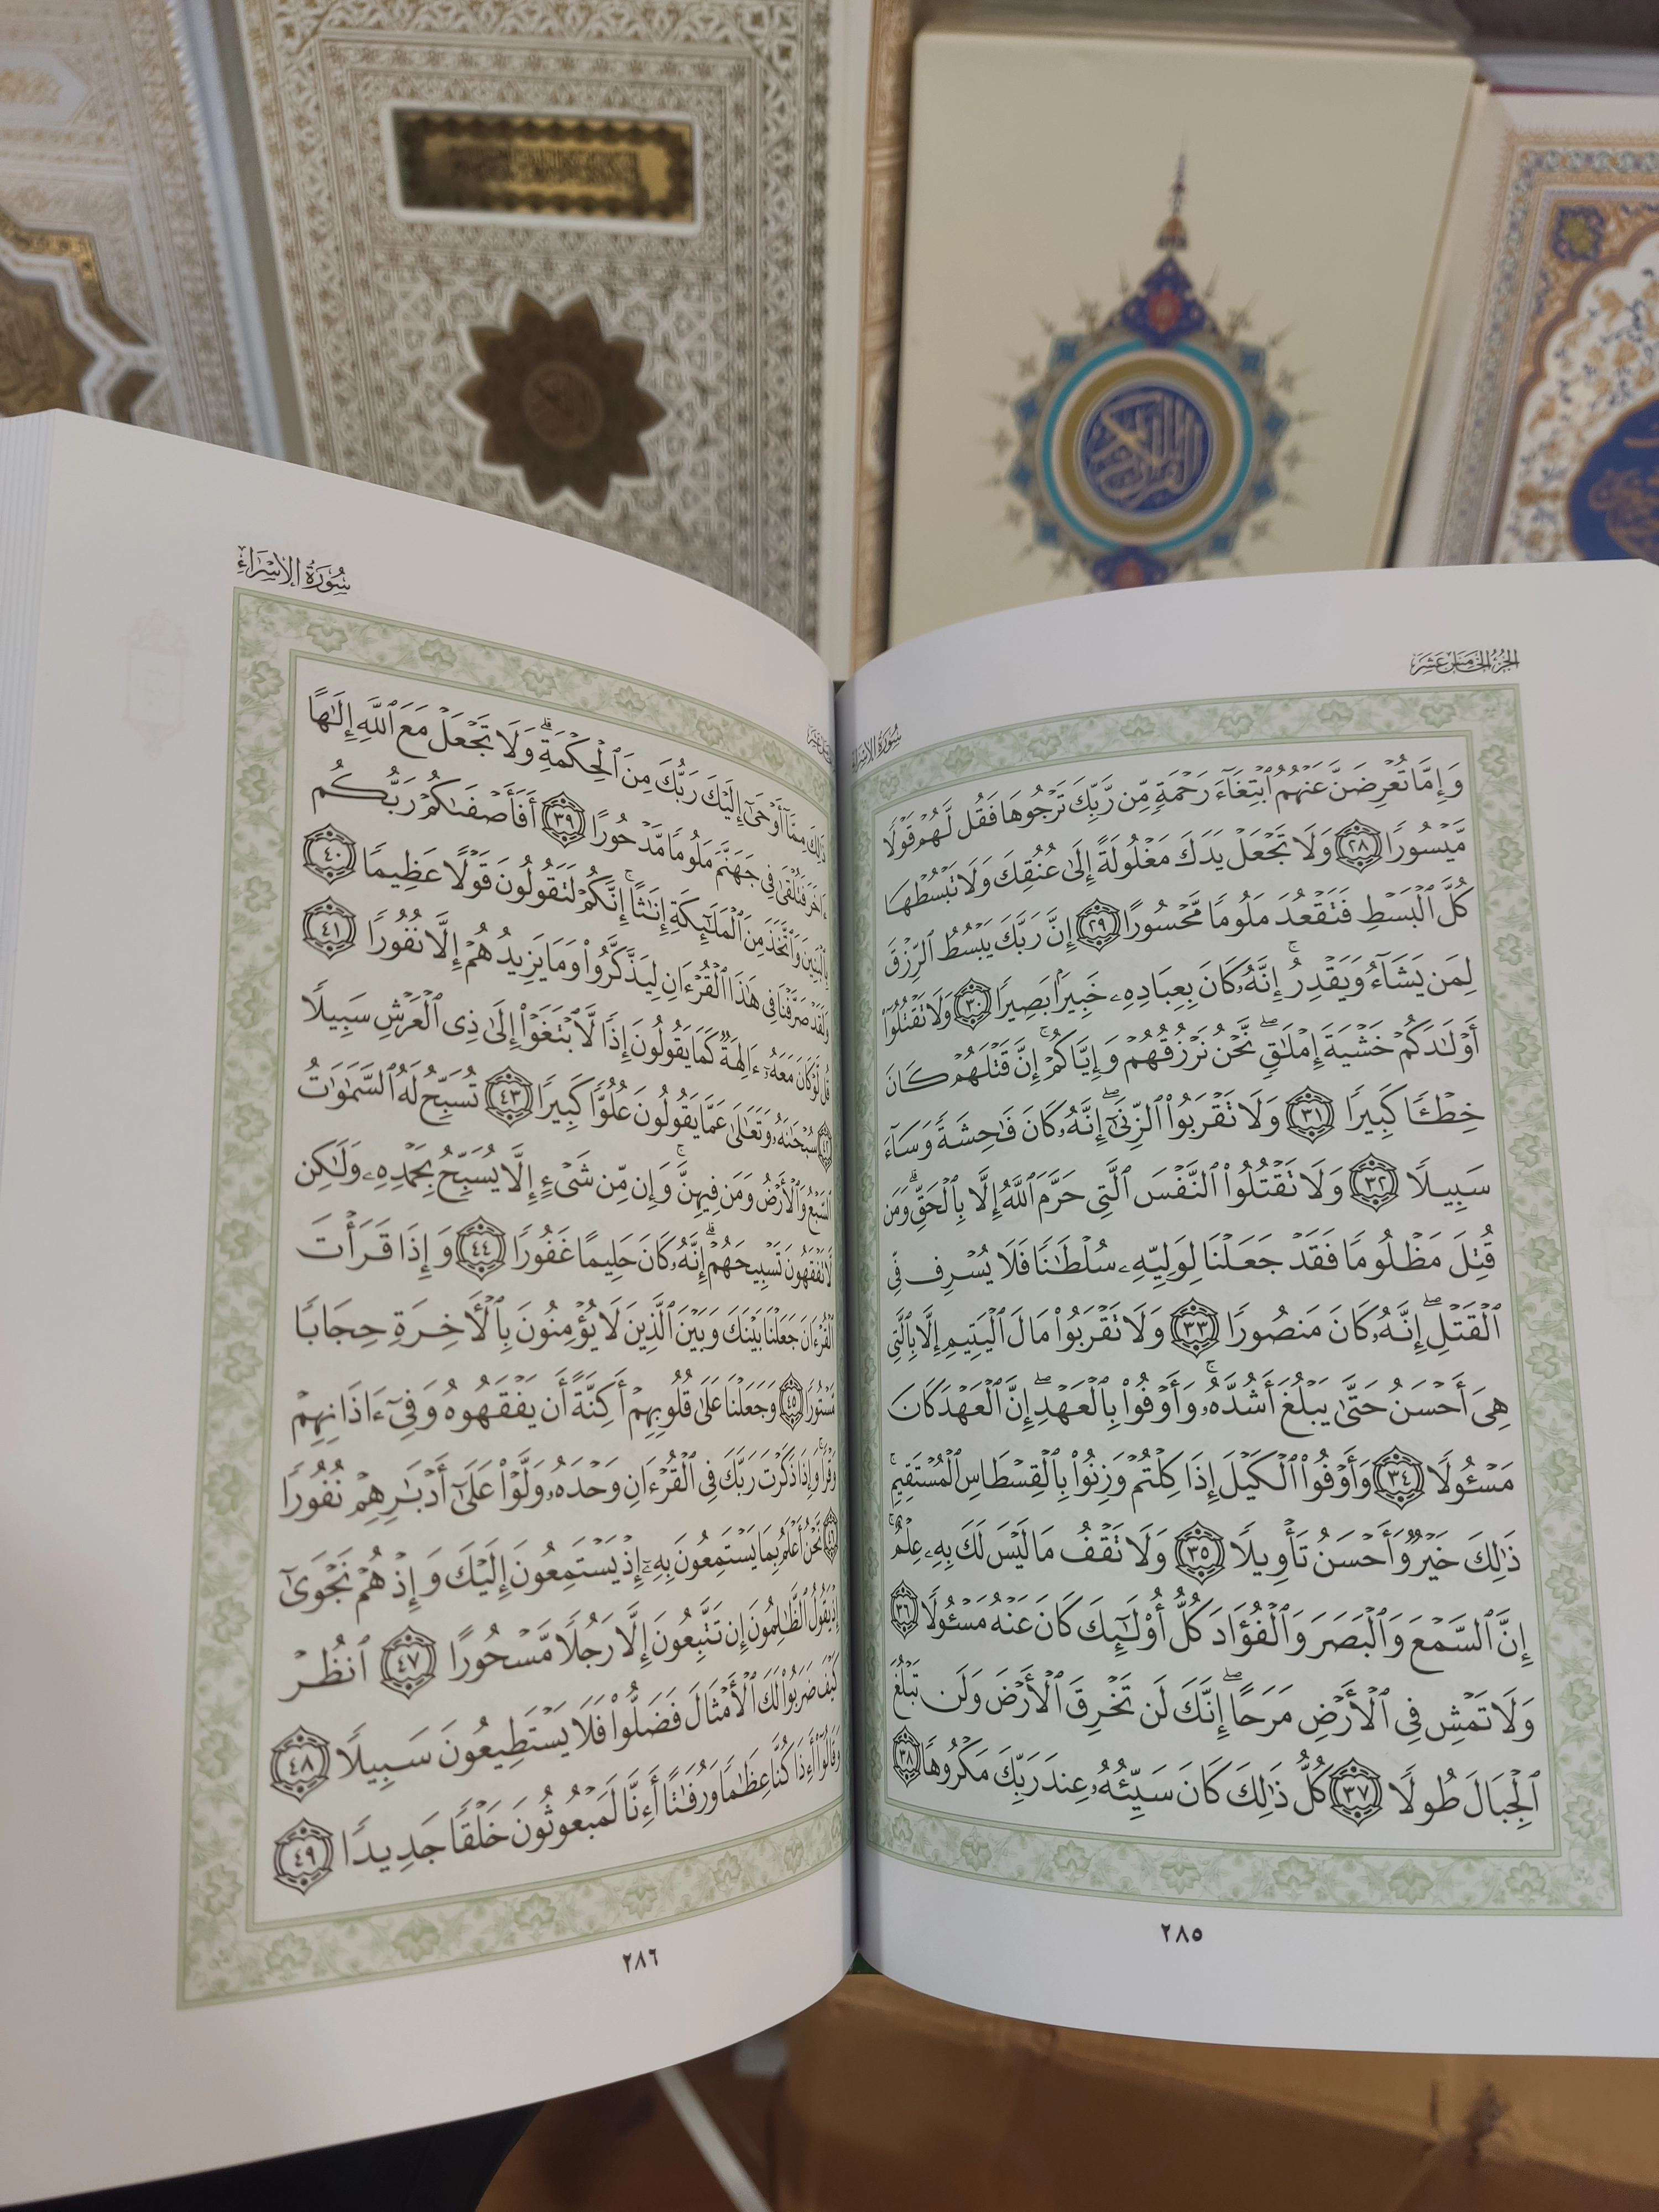 الجزء الخامس عشر
سورة الإسراء
وَإِمَّا تُعْرِضَنَّ عَنْهُمُ ٱبْتِغَآءَ رَحْمَةٍ مِّن رَّبِّكَ تَرْجُوهَا فَقُل لَّهُمْ قَوْلًا
مَّيْسُورًا ٢٨ وَلَا تَجْعَلْ يَدَكَ مَغْلُولَةً إِلَىٰ عُنُقِكَ وَلَا تَبْسُطْهَا
كُلَّ ٱلْبَسْطِ فَتَقْعُدَ مَلُومًا مَّحْسُورًا ٢٩ إِنَّ رَبَّكَ يَبْسُطُ ٱلرِّزْقَ
لِمَن يَشَآءُ وَيَقْدِرُ ۚ إِنَّهُۥ كَانَ بِعِبَادِهِۦ خَبِيرًۢا بَصِيرًا ٣٠ وَلَا تَقْتُلُوٓا۟
أَوْلَٰدَكُمْ خَشْيَةَ إِمْلَٰقٍ ۖ نَّحْنُ نَرْزُقُهُمْ وَإِيَّاكُمْ ۚ إِنَّ قَتْلَهُمْ كَانَ
خِطْـًٔا كَبِيرًا ٣١ وَلَا تَقْرَبُوا۟ ٱلزِّنَىٰٓ ۖ إِنَّهُۥ كَانَ فَٰحِشَةً وَسَآءَ
سَبِيلًا ٣٢ وَلَا تَقْتُلُوا۟ ٱلنَّفْسَ ٱلَّتِى حَرَّمَ ٱللَّهُ إِلَّا بِٱلْحَقِّ ۗ وَمَن
قُتِلَ مَظْلُومًا فَقَدْ جَعَلْنَا لِوَلِيِّهِۦ سُلْطَٰنًا فَلَا يُسْرِف فِّى
ٱلْقَتْلِ ۖ إِنَّهُۥ كَانَ مَنصُورًا ٣٣ وَلَا تَقْرَبُوا۟ مَالَ ٱلْيَتِيمِ إِلَّا بِٱلَّتِى
هِىَ أَحْسَنُ حَتَّىٰ يَبْلُغَ أَشُدَّهُۥ ۚ وَأَوْفُوا۟ بِٱلْعَهْدِ ۖ إِنَّ ٱلْعَهْدَ كَانَ
مَسْـُٔولًا ٣٤ وَأَوْفُوا۟ ٱلْكَيْلَ إِذَا كِلْتُمْ وَزِنُوا۟ بِٱلْقِسْطَاسِ ٱلْمُسْتَقِيمِ ۚ
ذَٰلِكَ خَيْرٌ وَأَحْسَنُ تَأْوِيلًا ٣٥ وَلَا تَقْفُ مَا لَيْسَ لَكَ بِهِۦ عِلْمٌ ۚ
إِنَّ ٱلسَّمْعَ وَٱلْبَصَرَ وَٱلْفُؤَادَ كُلُّ أُو۟لَٰٓئِكَ كَانَ عَنْهُ مَسْـُٔولًا ٣٦
وَلَا تَمْشِ فِى ٱلْأَرْضِ مَرَحًا ۖ إِنَّكَ لَن تَخْرِقَ ٱلْأَرْضَ وَلَن تَبْلُغَ
ٱلْجِبَالَ طُولًا ٣٧ كُلُّ ذَٰلِكَ كَانَ سَيِّئُهُۥ عِندَ رَبِّكَ مَكْرُوهًا ٣٨
٢٨٥
سورة الإسراء
ذَٰلِكَ مِمَّآ أَوْحَىٰٓ إِلَيْكَ رَبُّكَ مِنَ ٱلْحِكْمَةِ ۗ وَلَا تَجْعَلْ مَعَ ٱللَّهِ إِلَٰهًا
ءَاخَرَ فَتُلْقَىٰ فِى جَهَنَّمَ مَلُومًا مَّدْحُورًا ٣٩ أَفَأَصْفَىٰكُمْ رَبُّكُم
بِٱلْبَنِينَ وَٱتَّخَذَ مِنَ ٱلْمَلَٰٓئِكَةِ إِنَٰثًا ۚ إِنَّكُمْ لَتَقُولُونَ قَوْلًا عَظِيمًا ٤٠
وَلَقَدْ صَرَّفْنَا فِى هَٰذَا ٱلْقُرْءَانِ لِيَذَّكَّرُوا۟ وَمَا يَزِيدُهُمْ إِلَّا نُفُورًا ٤١
قُل لَّوْ كَانَ مَعَهُۥٓ ءَالِهَةٌ كَمَا يَقُولُونَ إِذًا لَّٱبْتَغَوْا۟ إِلَىٰ ذِى ٱلْعَرْشِ سَبِيلًا
٤٢ سُبْحَٰنَهُۥ وَتَعَٰلَىٰ عَمَّا يَقُولُونَ عُلُوًّا كَبِيرًا ٤٣ تُسَبِّحُ لَهُ ٱلسَّمَٰوَٰتُ
ٱلسَّبْعُ وَٱلْأَرْضُ وَمَن فِيهِنَّ ۚ وَإِن مِّن شَىْءٍ إِلَّا يُسَبِّحُ بِحَمْدِهِۦ وَلَٰكِن
لَّا تَفْقَهُونَ تَسْبِيحَهُمْ ۗ إِنَّهُۥ كَانَ حَلِيمًا غَفُورًا ٤٤ وَإِذَا قَرَأْتَ
ٱلْقُرْءَانَ جَعَلْنَا بَيْنَكَ وَبَيْنَ ٱلَّذِينَ لَا يُؤْمِنُونَ بِٱلْأَخِرَةِ حِجَابًا
مَّسْتُورًا ٤٥ وَجَعَلْنَا عَلَىٰ قُلُوبِهِمْ أَكِنَّةً أَن يَفْقَهُوهُ وَفِىٓ ءَاذَانِهِمْ
وَقْرًا ۚ وَإِذَا ذَكَرْتَ رَبَّكَ فِى ٱلْقُرْءَانِ وَحْدَهُۥ وَلَّوْا۟ عَلَىٰٓ أَدْبَٰرِهِمْ نُفُورًا
٤٦ نَّحْنُ أَعْلَمُ بِمَا يَسْتَمِعُونَ بِهِۦٓ إِذْ يَسْتَمِعُونَ إِلَيْكَ وَإِذْ هُمْ نَجْوَىٰٓ
إِذْ يَقُولُ ٱلظَّٰلِمُونَ إِن تَتَّبِعُونَ إِلَّا رَجُلًا مَّسْحُورًا ٤٧ ٱنظُرْ
كَيْفَ ضَرَبُوا۟ لَكَ ٱلْأَمْثَالَ فَضَلُّوا۟ فَلَا يَسْتَطِيعُونَ سَبِيلًا ٤٨
وَقَالُوٓا۟ أَءِذَا كُنَّا عِظَٰمًا وَرُفَٰتًا أَءِنَّا لَمَبْعُوثُونَ خَلْقًا جَدِيدًا ٤٩
٢٨٦
القرآن الكريم